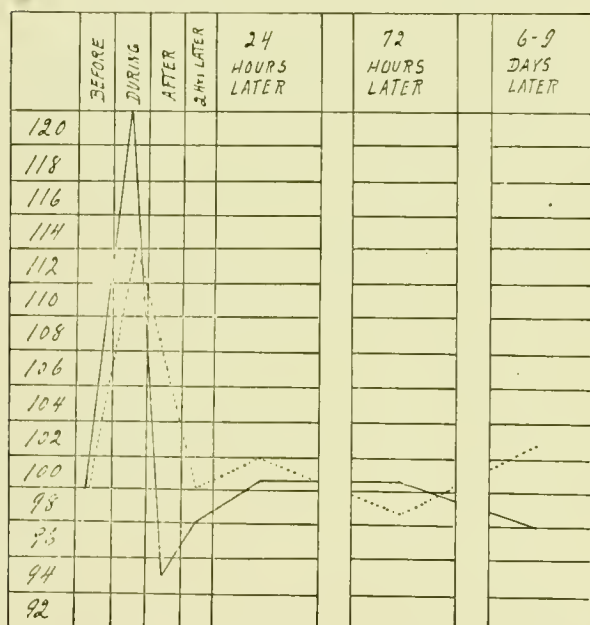 BEFORE
DURING
AFTER
2 HRS LATER
24
HOURS
LATER
72
HOURS
LATER
6-9
DAYS
LATER
120
118
116
114
112
110
108
106
104
102
100
98
96
94
92